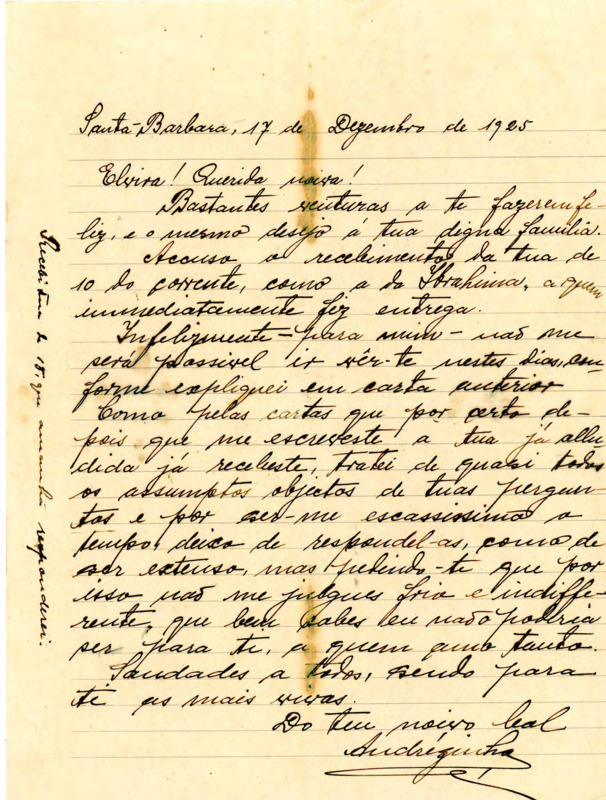 Santa-Barbara, 17 de Dezembro de 1925
Elvira! Querida noiva!
Bastantes venturas a te fazerem fe-
liz, e o mesmo desejo á tua digna familia.
Accuso o recebimento da tua de
10 do corrente, como a da Ibrahima, a quem
immediatamente fiz entrega.
Infelizmente - para mim - não me
será possivel ir vêr-te nestes dias, con-
forme expliquei em carta anterior
Como pelas cartas que por certo de-
pois que me escreveste a tua já allu
dida já recebeste, tratei de quasi todos
os assumptos objectos de tuas pergun-
tas e por ser-me escassissimo o
tempo, deixo de respondel-as, como de
ser extenso, mas pedindo-te que por
isso não me julgues frio e indiffe-
rente, que bem sabes eu não poderia
ser para ti, a quem amo tanto.
Saudades a todos, sendo para
ti as mais vivas.
Do teu noivo leal
Andrézinho
Recebi tua de 15, que amanhã responderei.